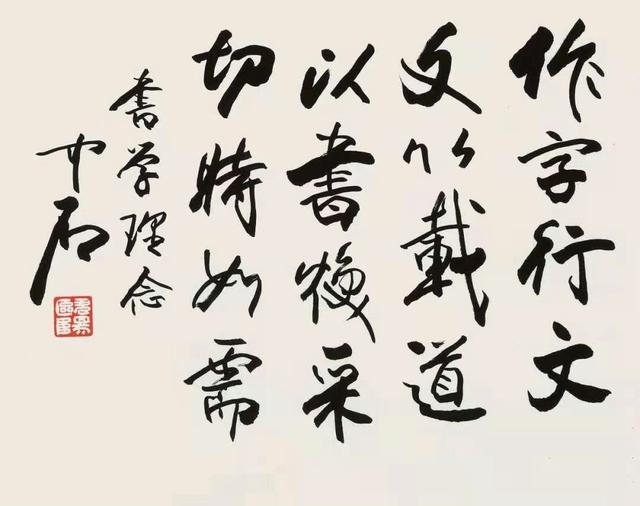 作字行文
文以載道
以書焕采
切時如需
書学理念
中石